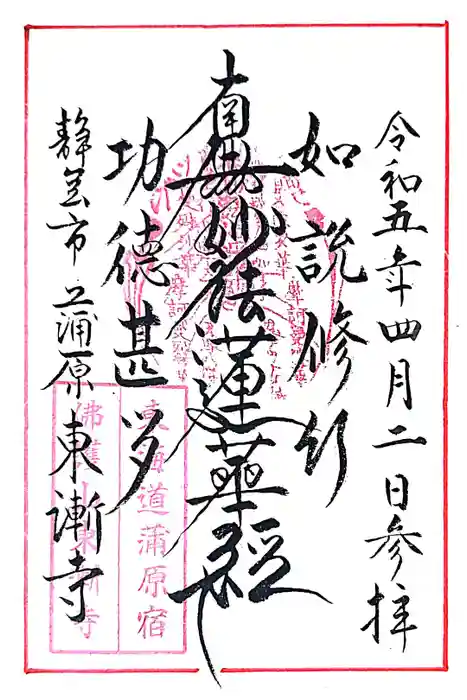 令和五年四月二日参拝
如説修行
南無妙法蓮華経
功徳甚多
静岡市蒲原東漸寺
東海道蒲原宿